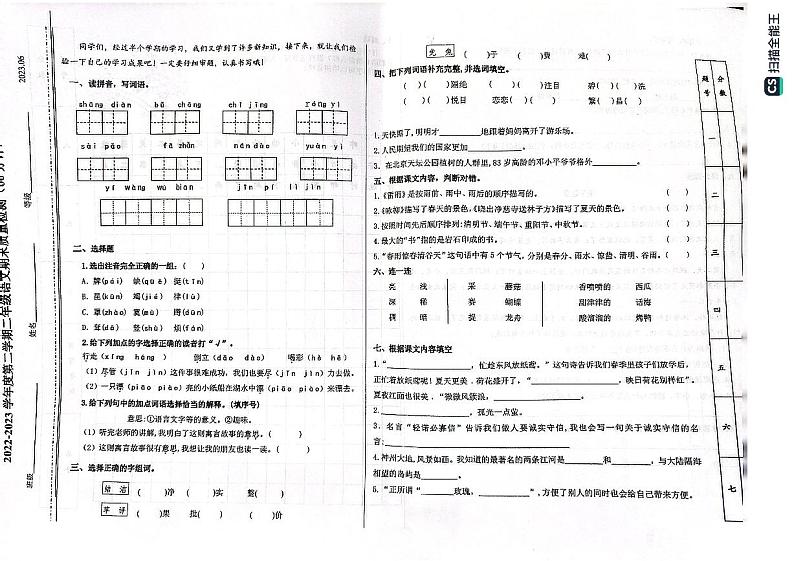 2022-2023 学年度第二学期二年级语文期末质量检测
2023.06
等级
姓名
班级
同学们，经过半个学期的学习，我们又学到了许多新知识，接下来，就让我们检
验一下自己的学习成果吧！一定要仔细审题，认真书写哦！
一、读拼音，写词语。
二、选择题
1.选出注音完全正确的一组：（ ）
2.给下列加点的字选择正确的读音打“√”。
行走（xíng háng ） 倒立（dǎo dào） 喝彩（hè hē）
（1）尽管（jǐn jìn）这件事很难成功，我们也要尽（jǐn jìn）力去做。
（2）一只漂（piāo piào）亮的小纸船在湖水中漂（piāo piào）来漂去。
3.给下列句中的加点词语选择恰当的解释。（填序号）
意思：①语言文字等的意义。②趣味。
（1）听完老师的讲解，我明白了这则寓言故事的意思。（ ）
（2）这则寓言故事很有意思，我想让我的朋友也读一读。（ ）
三、选择正确的字组词。
结 洁 （ ）净 （ ）实 整（ ）
苹 评 （ ）果 批（ ） （ ）价
免 兔 （ ）于 （ ）费 难（ ）
四、把下列词语补充完整，并选词填空。
（ ）（ ）隔绝 （ ）（ ）注目 碧（ ）（ ）洗
（ ）（ ）悦目 恋恋（ ）（ ） 繁（ ）昌（ ）
1.天快黑了，明明才________地跟着妈妈离开了游乐场。
2.人民期望我们的国家更加________。
3. 在北京天坛公园植树的人群里，83 岁高龄的邓小平爷爷格外________。
五、根据课文内容，判断对错。
1.《雷雨》是按雨前、雨中、雨后的顺序描写的。（ ）
2.《咏柳》描写了春天的景色，《晓出净慈寺送林子方》描写了夏天的景色。（ ）
3.按照时间先后顺序排列：清明节、端午节、重阳节、中秋节。（ ）
4.最大的“书”指的是岩石印成的书。（ ）
5.“春雨惊春清谷天”这句话中有 5 个节气，分别是春分、雨水、惊蛰、清明、谷雨。（ ）
六、连一连
亮 浅 采 蘑菇 香喷喷的 西瓜
深 稀 赛 蝴蝶 甜津津的 话梅
稠 暗 捉 龙舟 酸溜溜的 烤鸭
七、根据课文内容填空
1. “________，忙趁东风放纸鸢。”这句诗告诉我们春季里孩子们放学后，
正忙着放纸鸢呢！夏天更美，荷花盛开了，“________，映日荷花别样红”。
夏夜江面也很美，“微微风簇浪，________。
2.________，孤光一点萤。
3. 名言“轻诺必寡信”告诉我们做人要诚实守信，我也会写一句关于诚实守信的名
言：________
4.神州大地，风景如画。我知道的最著名的两条江河是________和________，与大陆隔海
相望的岛屿是________。
5. “正所谓“________玫瑰，________”，方便了别人的同时也会给自己带来方便。
题号 分数
一
二
三
四
五
六
七
CS 扫描全能王